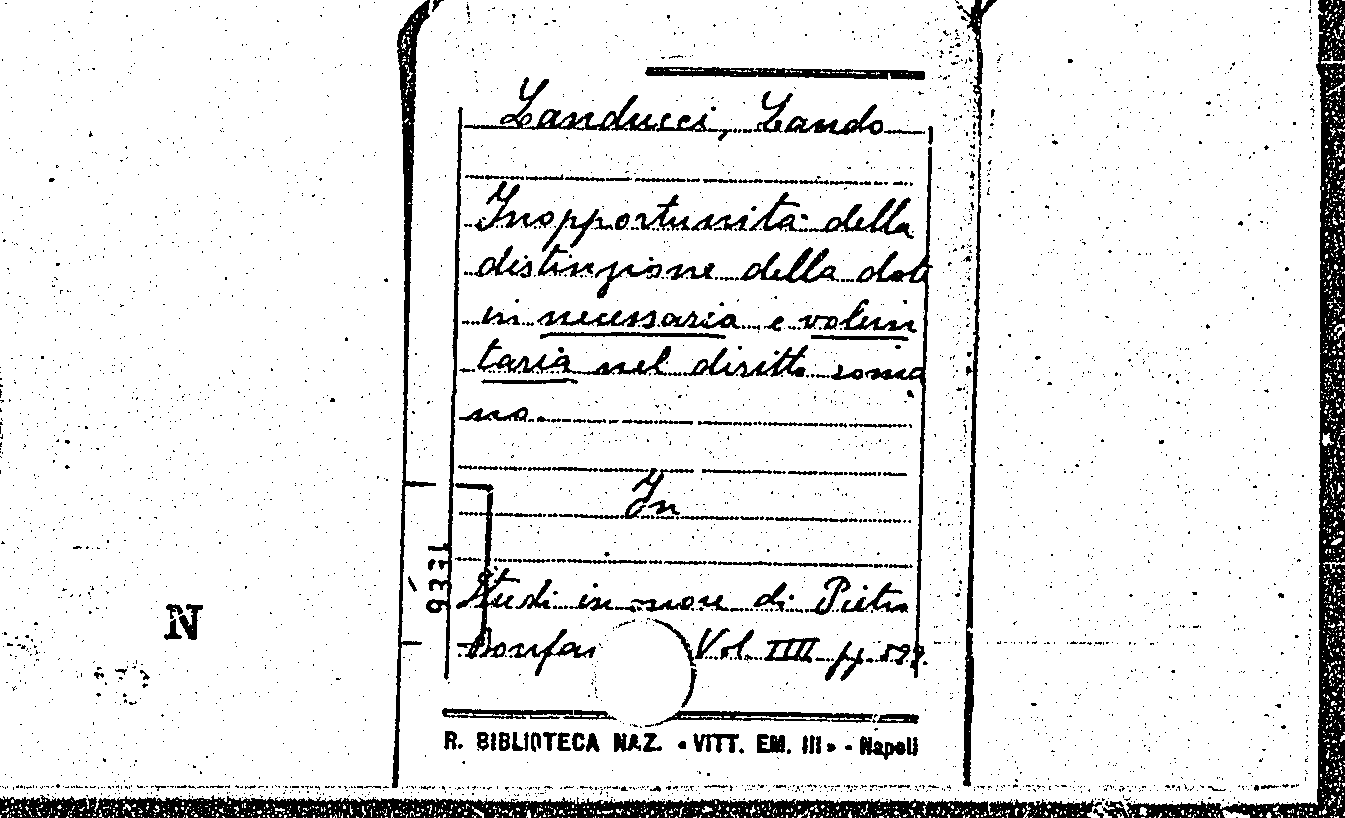 Landucci, Lando
Inopportunità della
distinzione della dote
in necessaria e volun
taria nel diritto roma
no.
In
Studi in onore di Pietro
Bonfan Vol IIII pp.
9331
N
R. BIBLIOTECA NAZ. «VITT. EM. III» - Napoli